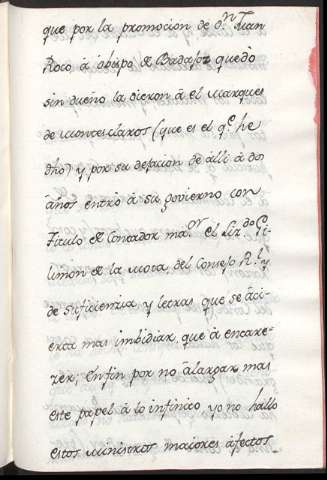 que por la promocion de D.ⁿ Juan
Roco à obispo de Badajoz quedò
sin dueño la dieron à el Marques
de Montesclaros (que es el q.ᵉ he
dho) y por su dejacion de alli à dos
años entrò à su govierno con
Titulo de Contador ma.ᵒʳ el Liz.ᵈᵒ Gi-
limon de la Mota, del Consejo R.ˡ y
de suficienzia y letras que se àci-
erta mas imbidiar, que à encare-
zer; Enfin por no àlargar mas
este papel à lo infinito, yo no hallo
estos Ministros maiores àfectos